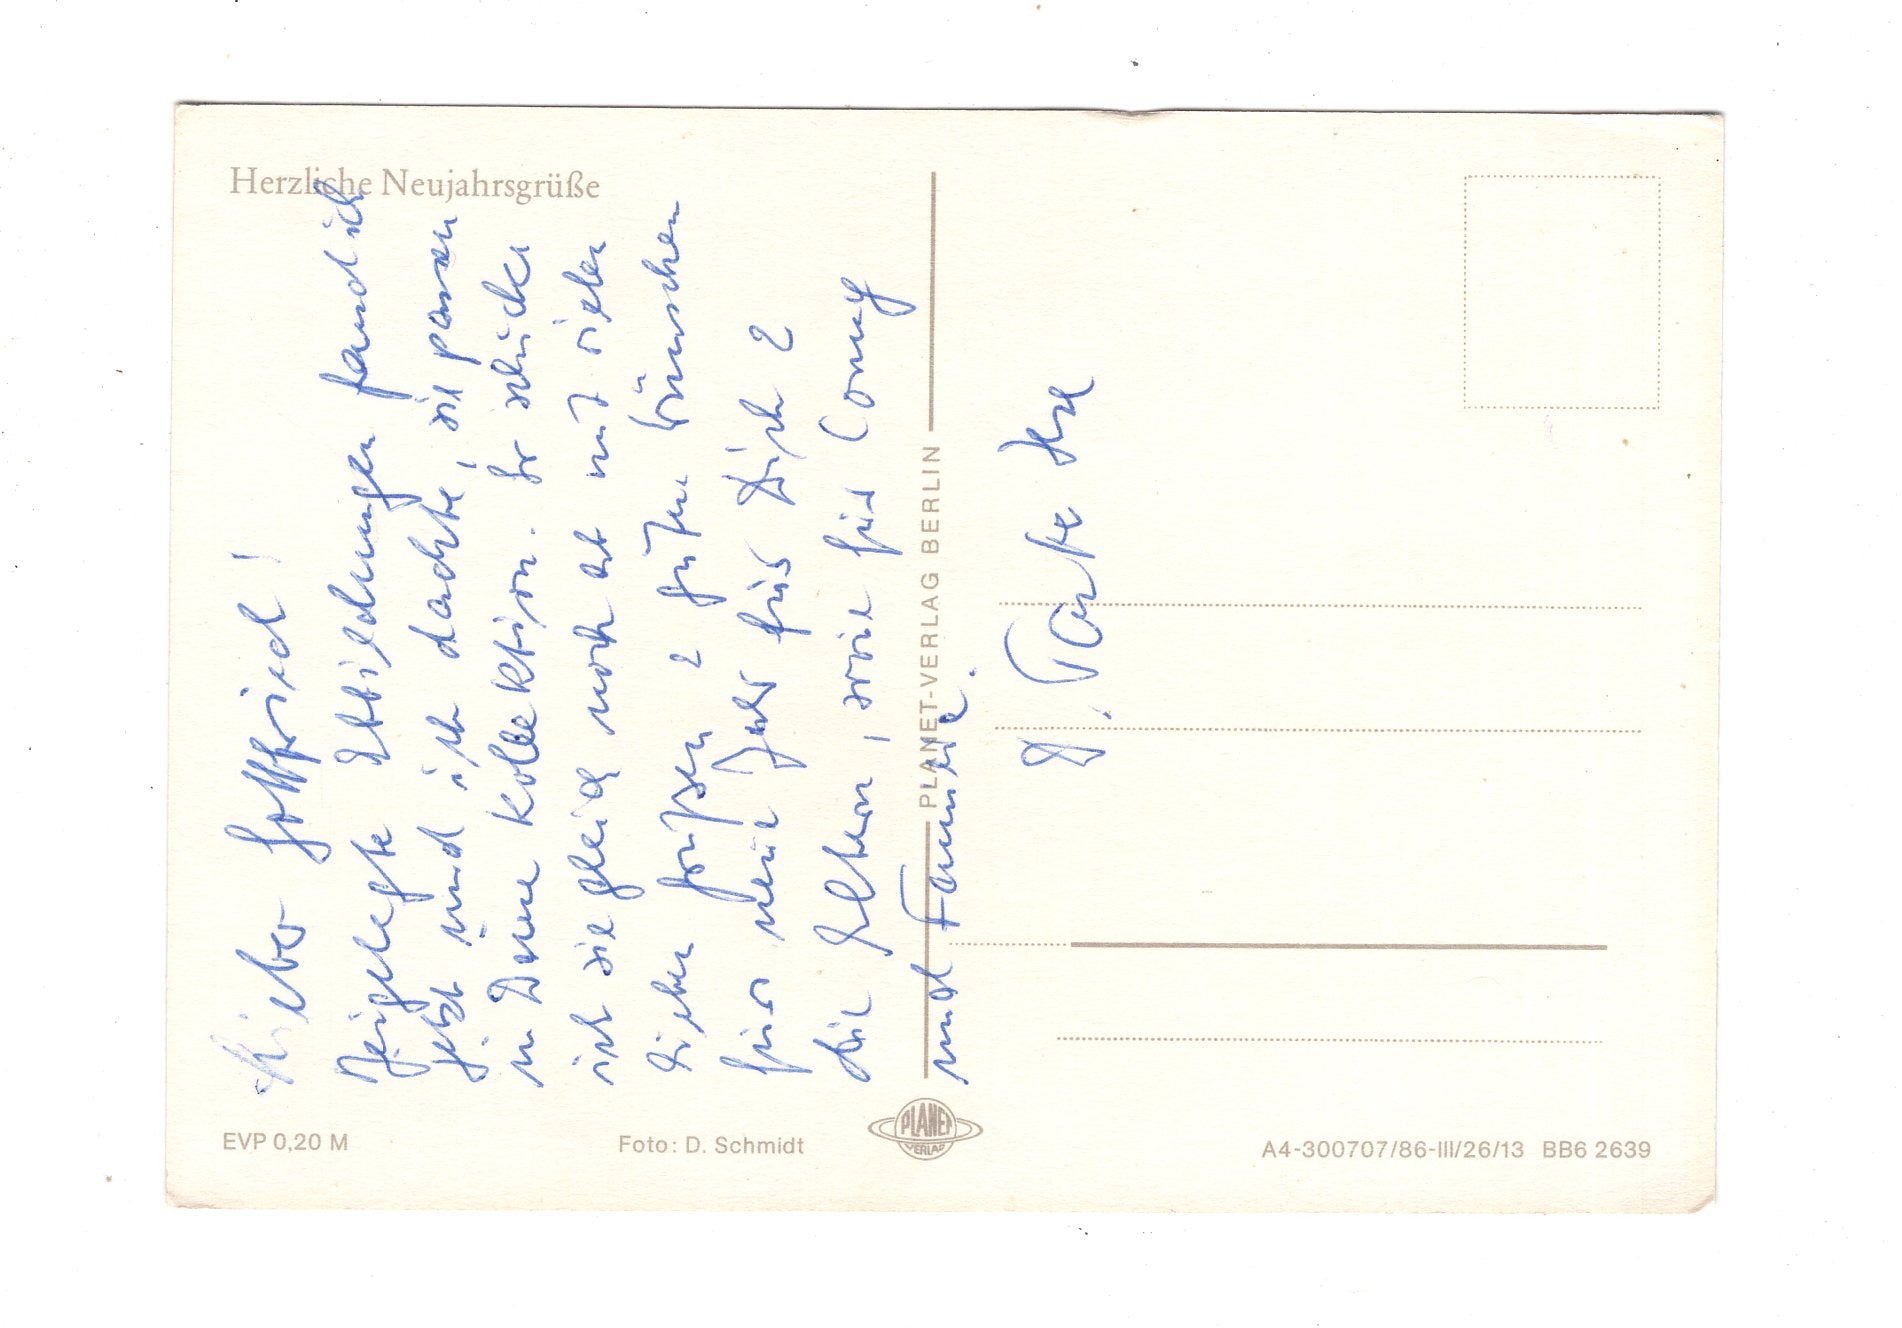 Herzliche Neujahrsgrüße
Lieber Gottfried!
Beigelegte Abbildungen fand ich
jetzt und ich dachte, sie passen
in Deine Kollektion. So schicke
ich sie gleich noch ab mit vielen
lieben Grüßen u guten Wünschen
fürs neue Jahr für Dich u
die Eltern, sowie für Conny
und Familie.
D. Tante Ilse
PLANET-VERLAG BERLIN
EVP 0,20 M
Foto: D. Schmidt
PLANET
VERLAG
A4-300707/86-III/26/13 BB6 2639